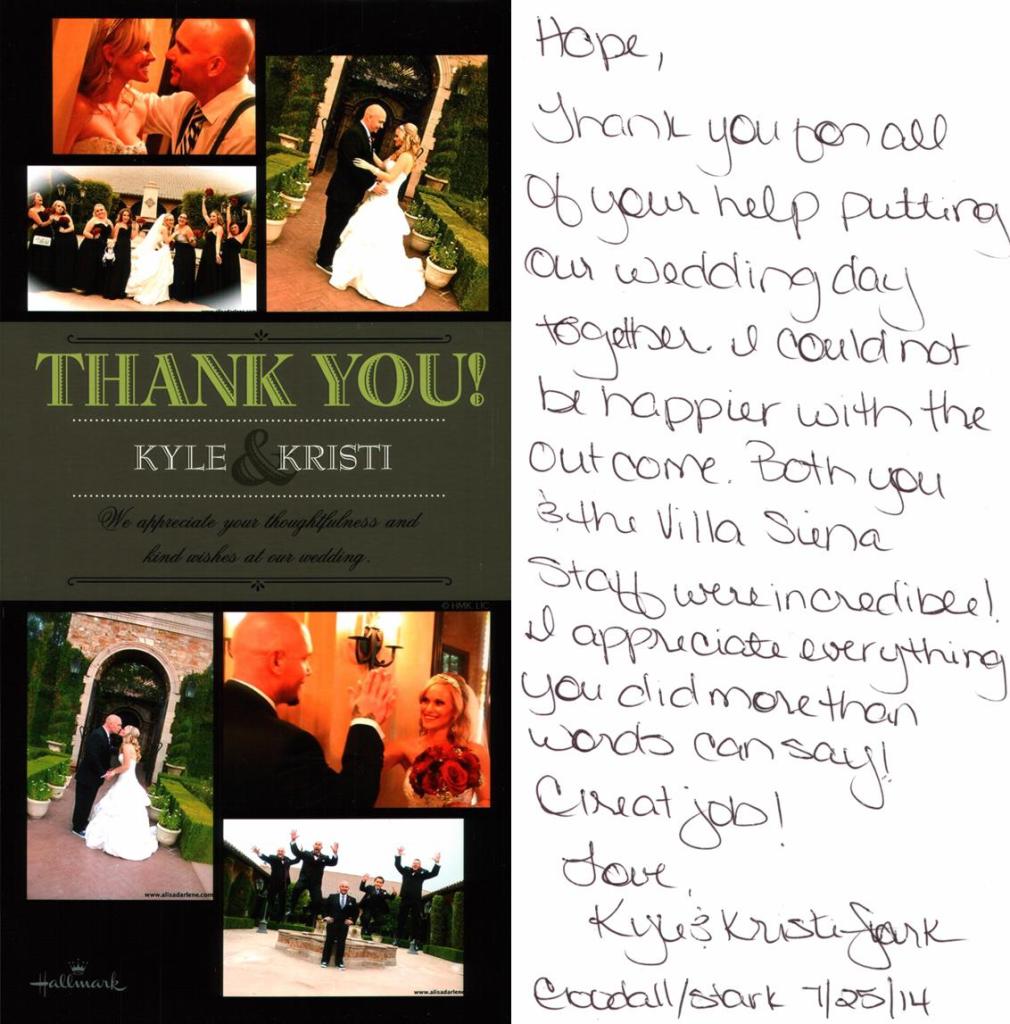 www.alisadarlene.com
THANK YOU!
KYLE & KRISTI
We appreciate your thoughtfulness and
kind wishes at our wedding.
© HMK. LIC
www.alisadarlene.com
www.alisadarlene
Hallmark
Hope,
Thank you for all
of your help putting
our wedding day
together. I could not
be happier with the
outcome. Both you
& the Villa Siena
staff were incredible!
I appreciate everything
you did more than
words can say!
Great job!
Love,
Kyle & Kristi Stark
/Stark 7/25/14